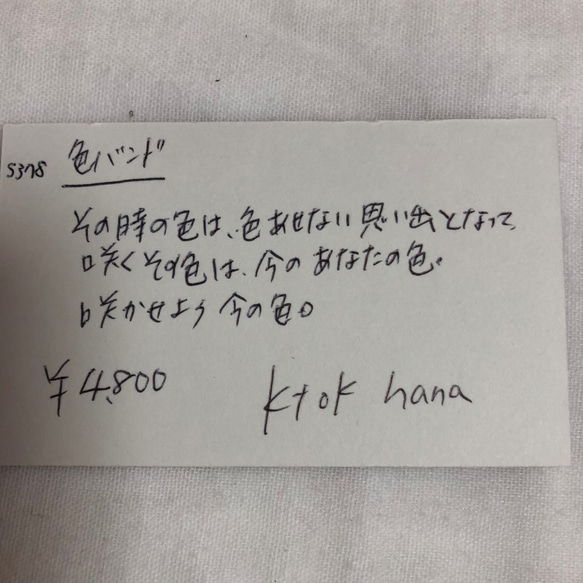 5378 色バンド
その時の色は、色あせない思い出となって、
咲くその色は、今のあなたの色。
咲かせよう今の色。
¥4,800
ktok hana